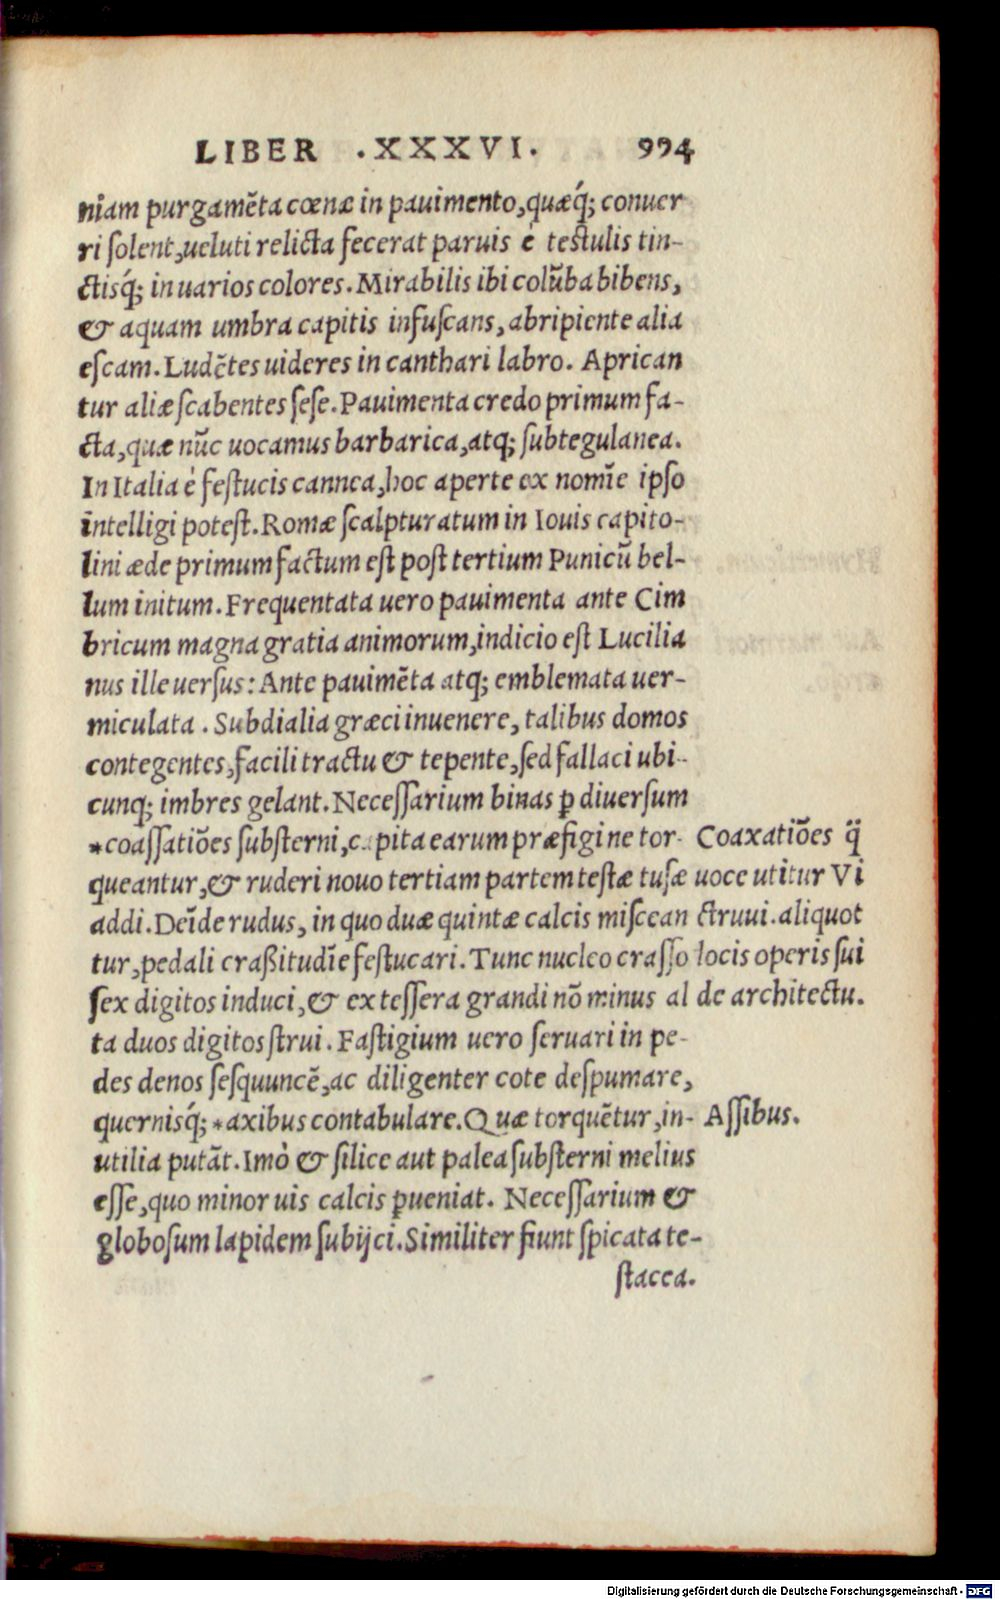 LIBER .XXXVI. 994
niam purgamẽta cœnæ in pauimento,quæq́; conuer
ri ſolent,ueluti relicta fecerat paruis è teſtulis tin-
ctisq́; in uarios colores.Mirabilis ibi colũba bibens,
& aquam umbra capitis infuſcans,abripiente alia
eſcam.Ludẽtes uideres in canthari labro. Aprican
tur aliæ ſcabentes ſeſe.Pauimenta credo primum fa-
cta,quæ nũc uocamus barbarica,atq; ſubtegulanea.
In Italia è feſtucis cannea,hoc aperte ex nomĩe ipſo
intelligi poteſt.Romæ ſcalpturatum in Iouis capito-
lini æde primum factum eſt poſt tertium Punicũ bel-
lum initum.Frequentata uero pauimenta ante Cim
bricum magna gratia animorum,indicio eſt Lucilia
nus ille uerſus: Ante pauimẽta atq; emblemata uer-
miculata . Subdialia græci inuenere, talibus domos
contegentes,facili tractu & tepente,ſed fallaci ubi-
cunq; imbres gelant.Neceſſarium binas ꝑ diuerſum
*coaſſatiões ſubſterni,capita earum præfigi ne tor-
queantur,& ruderi nouo tertiam partem teſtæ tuſæ
addi.Deĩde rudus, in quo duæ quintæ calcis miſcean
tur,pedali craßitudĩe feſtucari.Tunc nucleo craſſo
ſex digitos induci,& ex teſſera grandi nõ minus al
ta duos digitos ſtrui. Faſtigium uero ſeruari in pe-
des denos ſeſquuncẽ,ac diligenter cote deſpumare,
quernisq́; *axibus contabulare.Quæ torquẽtur,in-
utilia putãt.Imò & ſilice aut palea ſubſterni melius
eſſe,quo minor uis calcis ꝑueniat. Neceſſarium &
globoſum lapidem ſubijci.Similiter fiunt ſpicata te-
ſtacea.
Coaxatiões q̈
uoce utitur Vi
ctruui.aliquot
locis operis ſui
de architectu.
Aſſibus.
Digitalisierung gefördert durch die Deutsche Forschungsgemeinschaft - DFG